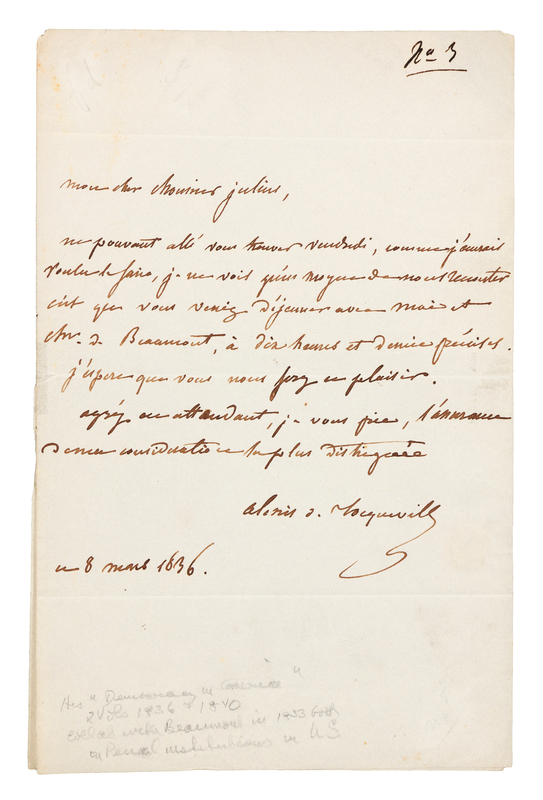 No 3
mon cher Monsieur julius,
ne pouvant allé vous trouver vendredi, comme j'aurais
voulu le faire, je ne vois qu'un moyen de nous rencontrer
c'est que vous veniez déjeuner avec moi et
Mr. de Beaumont, à dix heures et demie précises.
j'espère que vous nous ferez ce plaisir.
agréez en attendant, je vous prie, l'assurance
de ma considération la plus distinguée
alexis de Tocqueville
ce 8 mars 1836.
His "Democracy in America"
2 vols 1836 & 1840
with Beaumont in 1833 book
on Penal institutions in US